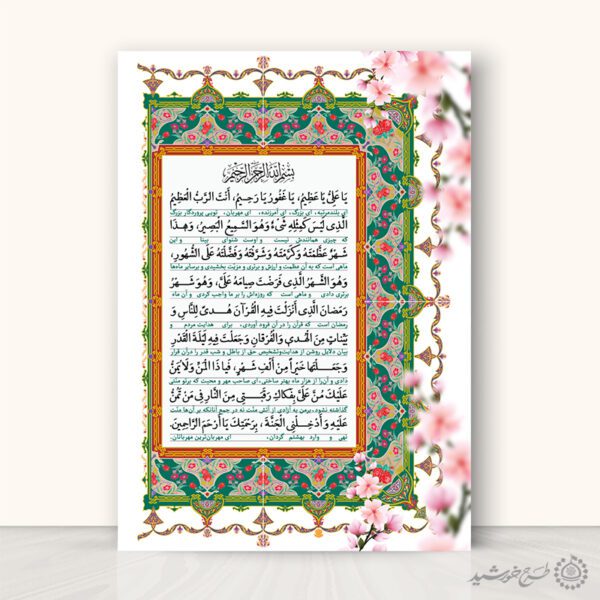 بِسْمِ اللهِ الرَّحْمٰنِ الرَّحِيمِ
يَا عَلِىُّ يَا عَظِيمُ، يَا غَفُورُ يَا رَحِيمُ، أَنْتَ الرَّبُّ الْعَظِيمُ
ای بلندمرتبه، ای بزرگ، ای آمرزنده، ای مهربان، تویی پروردگار بزرگ
الَّذِى لَيْسَ كَمِثْلِهِ شَىْءٌ وَهُوَ السَّمِيعُ الْبَصِيرُ، وَهٰذَا
که چیزی همانندش نیست و اوست شنوای بینا و این
شَهْرٌ عَظَّمْتَهُ وَكَرَّمْتَهُ وَشَرَّفْتَهُ وَفَضَّلْتَهُ عَلَى الشُّهُورِ،
ماهی است که به آن عظمت و ارزش و برتری و مزیّت بخشیدی و برسایر ماه‌ها
وَهُوَ الشَّهْرُ الَّذِى فَرَضْتَ صِيَامَهُ عَلَىَّ، وَهُوَ شَهْرُ
برتری دادی و ماهی است که روزه‌اش را بر ما واجب کردی و آن ماه
رَمَضَانَ الَّذِى أَنْزَلْتَ فِيهِ الْقُرْآنَ هُدىً لِلنَّاسِ وَ
رمضان است که قرآن را در آن فرود آوردی، برای هدایت مردم و
بَيِّنَاتٍ مِنَ الْهُدىٰ وَالْفُرْقَانِ وَجَعَلْتَ فِيهِ لَيْلَةَ الْقَدْرِ
بیان دلایل روشن از هدایت‌وتشخیص حق از باطل و شب قدر را درآن قرار
وَجَعَلْتَهَا خَيْراً مِنْ أَلْفِ شَهْرٍ، فَيَا ذَا الْمَنِّ وَلَا يُمَنُّ
دادی و آن‌را از هزار ماه بهتر ساختی، ای صاحب مهر و محبت که برتو منتی
عَلَيْكَ مُنَّ عَلَىَّ بِفَكَاكِ رَقَبَتِى مِنَ النَّارِ فِى مَنْ تَمُنُّ
گذاشته نشود، برمن به آزادی از آتش منّت نه در جمع آنانکه بر آن‌ها منّت
عَلَيْهِ وَأَدْخِلْنِى الْجَنَّةَ، بِرَحْمَتِكَ يَا أَرْحَمَ الرَّاحِمِينَ.
نهی و وارد بهشتم گردان، ای مهربان‌ترین مهربانان.
طرح خورشید